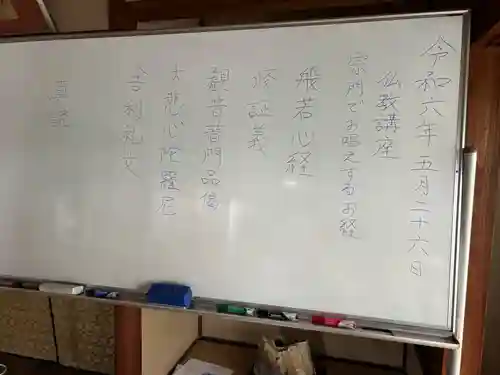 令和六年五月二十六日
仏教講座
宗門でお唱えするお経
般若心経
修証義
観音普門品偈
大悲心陀羅尼
舎利礼文